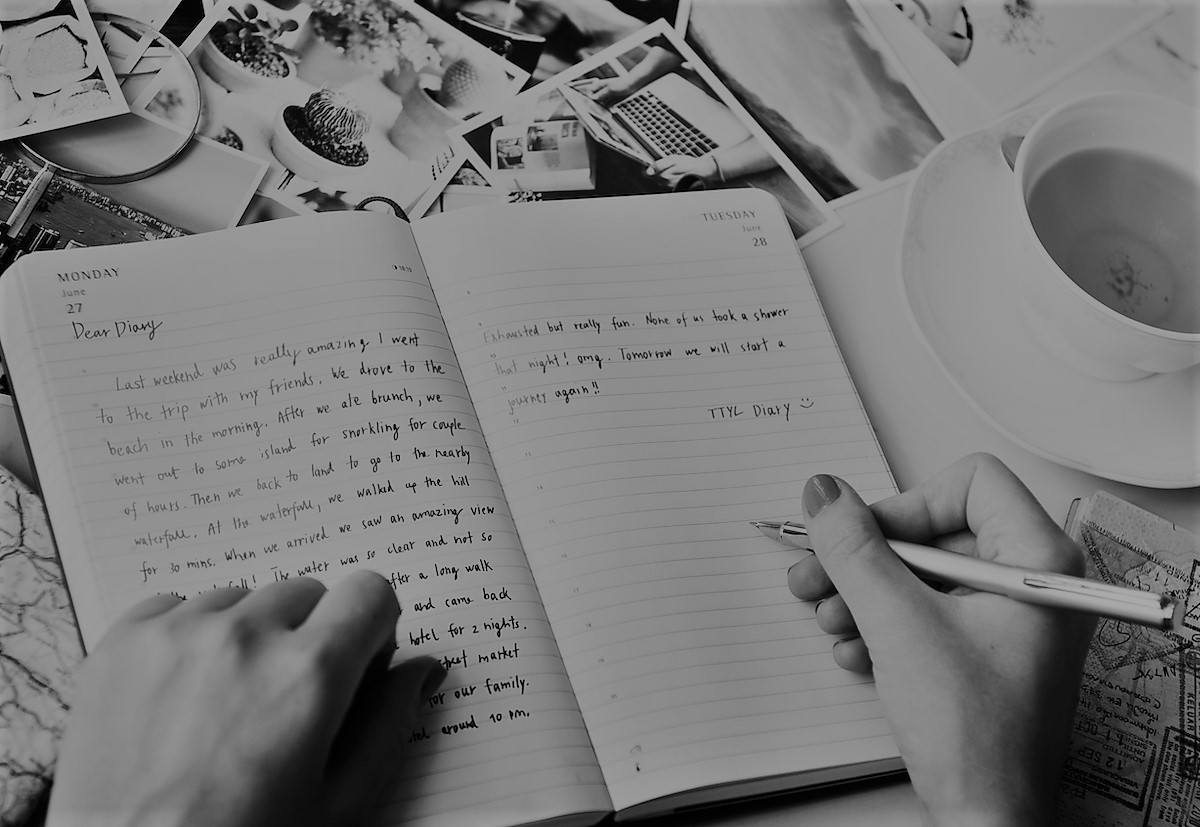 MONDAY
June
27
Dear Diary
Last weekend was really amazing I went
to the trip with my friends. We drove to the
beach in the morning. After we ate brunch, we
went out to some island for snorkling for couple
of hours. Then we back to land to go to the nearby
waterfall. At the waterfall, we walked up the hill
for 30 mins. When we arrived we saw an amazing view
The water was so clear and not so
after a long walk
and came back
hotel for 2 nights.
market
for our family.
around 10 pm.
TUESDAY
June
28
Exhausted but really fun. None of us took a shower
that night! omg. Tomorrow we will start a
journey again!!
TTYL Diary :)
12 SEP